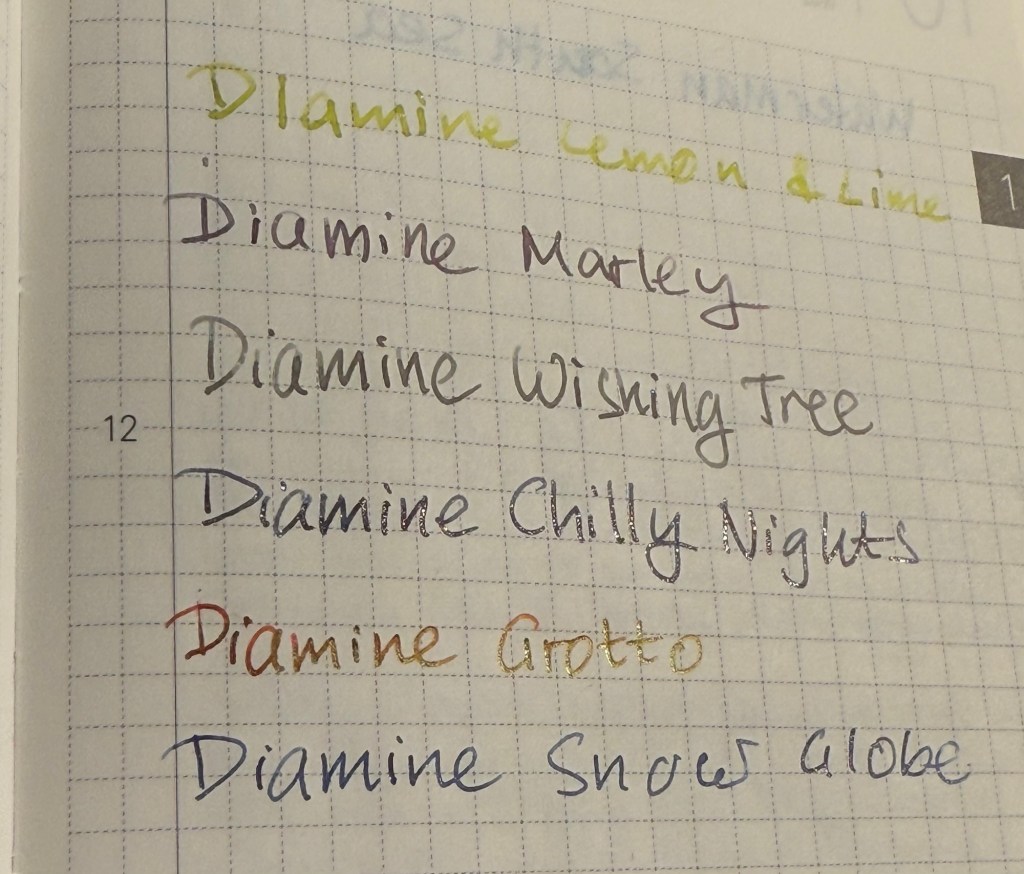 Diamine Lemon & Lime
Diamine Marley
Diamine Wishing Tree
12
Diamine Chilly Nights
Diamine Grotto
Diamine Snow Globe
1